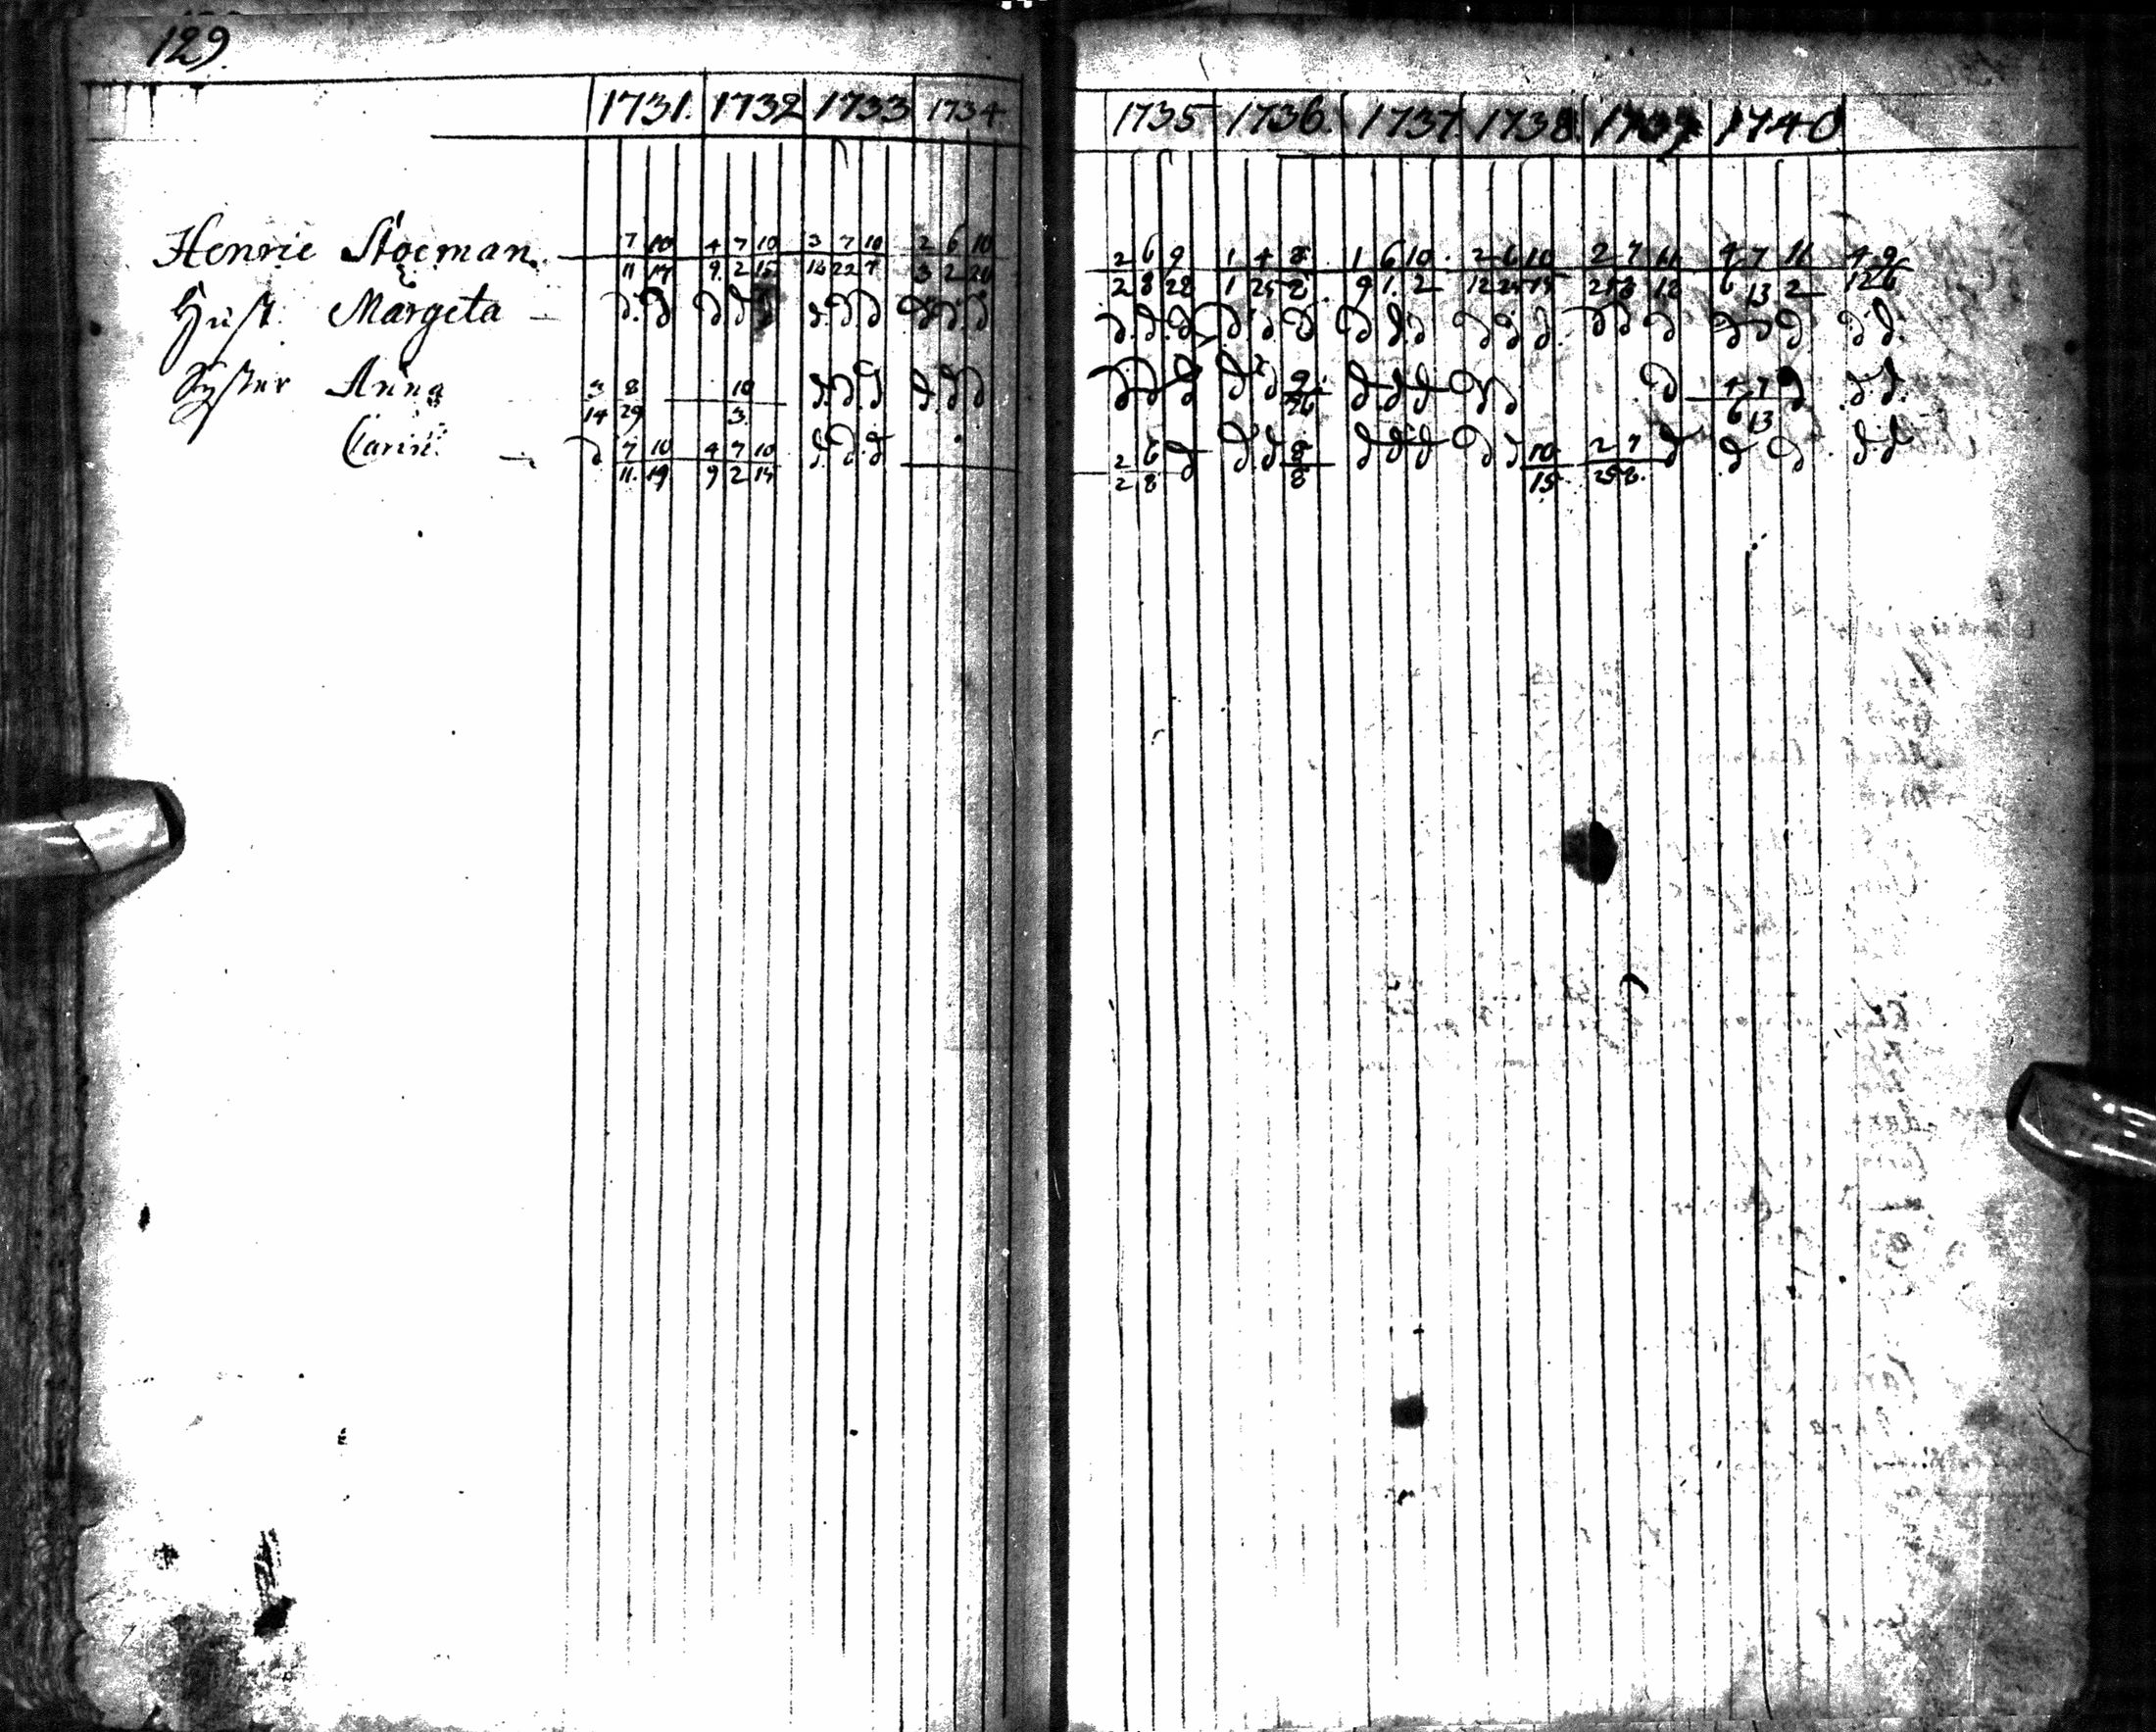 129.
1731. 1732 1733 1734. 1735 1736. 1737. 1738. 1739 1740
Henric Stocman. 7 10 4 7 10 3 7 10 2 6 10 2 6 9 1 4 8 1 6 10 2 6 10 2 7 11 4 7 11 4 9
11 17 9 2 15 14 22 7 3 2 20 2 8 28 1 25 8 9 1. 2 12 24 15 25 8 18 6 13 2 12 6
Hust. Margeta d. d d d d d. d d d d d d. d. d d. d. d d d. d d d d. d d d d d d. d d.
Syster Anna 3 8 10 d. d. d d d d d d d d d 9 d d d d d d 4 7 d d d.
14 29 3. 26 6 13
Carin: d 7 10 4 7 10 d. d. d 2 6 d d d 8 d d d d d 10 2 7 d d d d d
11. 19 9 2 15 2 8 8 15 25 8.